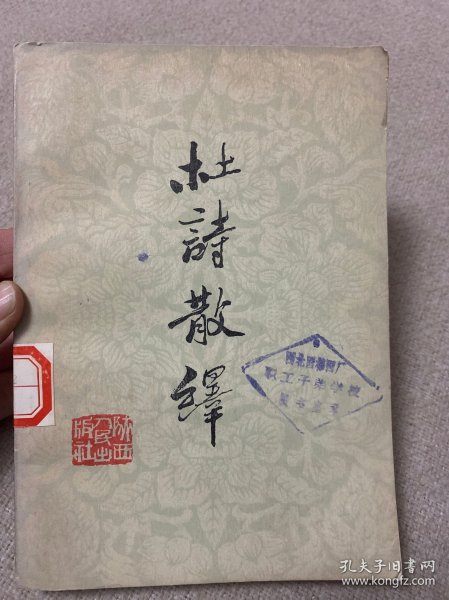 杜詩散繹
陕西
人民出
版社
职工子弟学校
孔夫子旧书网
www.kongfz.com